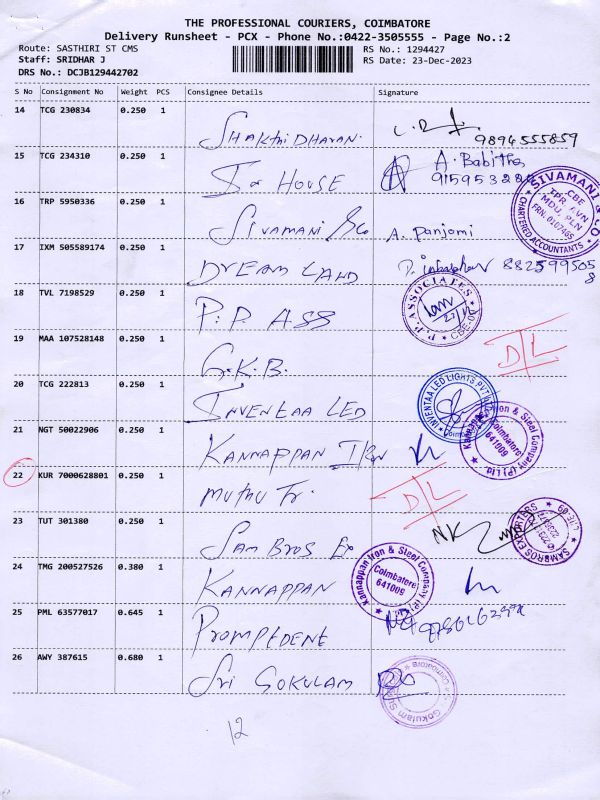 THE PROFESSIONAL COURIERS, COIMBATORE
Delivery Runsheet - PCX - Phone No.:0422-3505555 - Page No.:2
Route: SASTHIRI ST CMS RS No.: 1294427
Staff: SRIDHAR J RS Date: 23-Dec-2023
DRS No.: DCJB129442702
S No Consignment No Weight PCS Consignee Details Signature
14 TCG 230834 0.250 1
SHAKTHI DHARAN 9894555859
15 TCG 234310 0.250 1 A. Babitha
HOUSE
16 TRP 5950336 0.250 1
SIVAMANI &Co A. Panjami
SIVAMANI & CO
CHARTERED ACCOUNTANTS
CBE
TPR, LVN
MDU, PLN
17 IXM 505589174 0.250 1
DREAM LAND
18 TVL 7198529 0.250 1
P. P. ASS
P. P. ASSOCIATES
19 MAA 107528148 0.250 1
G.K.B. D/L
20 TCG 222813 0.250 1
INVENTAA LED
INVENTAA LED LIGHTS PVT
Coimbatore
21 NGT 50022906 0.250 1
KANNAPPAN IRN
Kannappan Iron & Steel Company (P) Ltd.
Coimbatore
641009
22 KUR 7000628801 0.250 1
MUTHU Tr. D/L
23 TUT 301380 0.250 1
SAM BROS EX NK
SAMBROS EXPORTERS
24 TMG 200527526 0.380 1
KANNAPPAN
Kannappan Iron & Steel Company (P) Ltd.
Coimbatore
641009
25 PML 63577017 0.645 1
PROMPEDENT
26 AWY 387615 0.680 1
SRI GOKULAM
Gokulam
Coimbatore
12